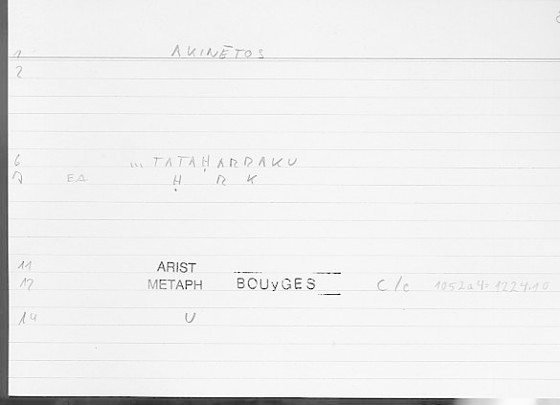 1 AKINĒTOS
2
6 ... TATAḤARRAKU
7 EA Ḥ R K
11 ARIST
12 METAPH BOUyGES C/c 1052a4=1224.10
14 U